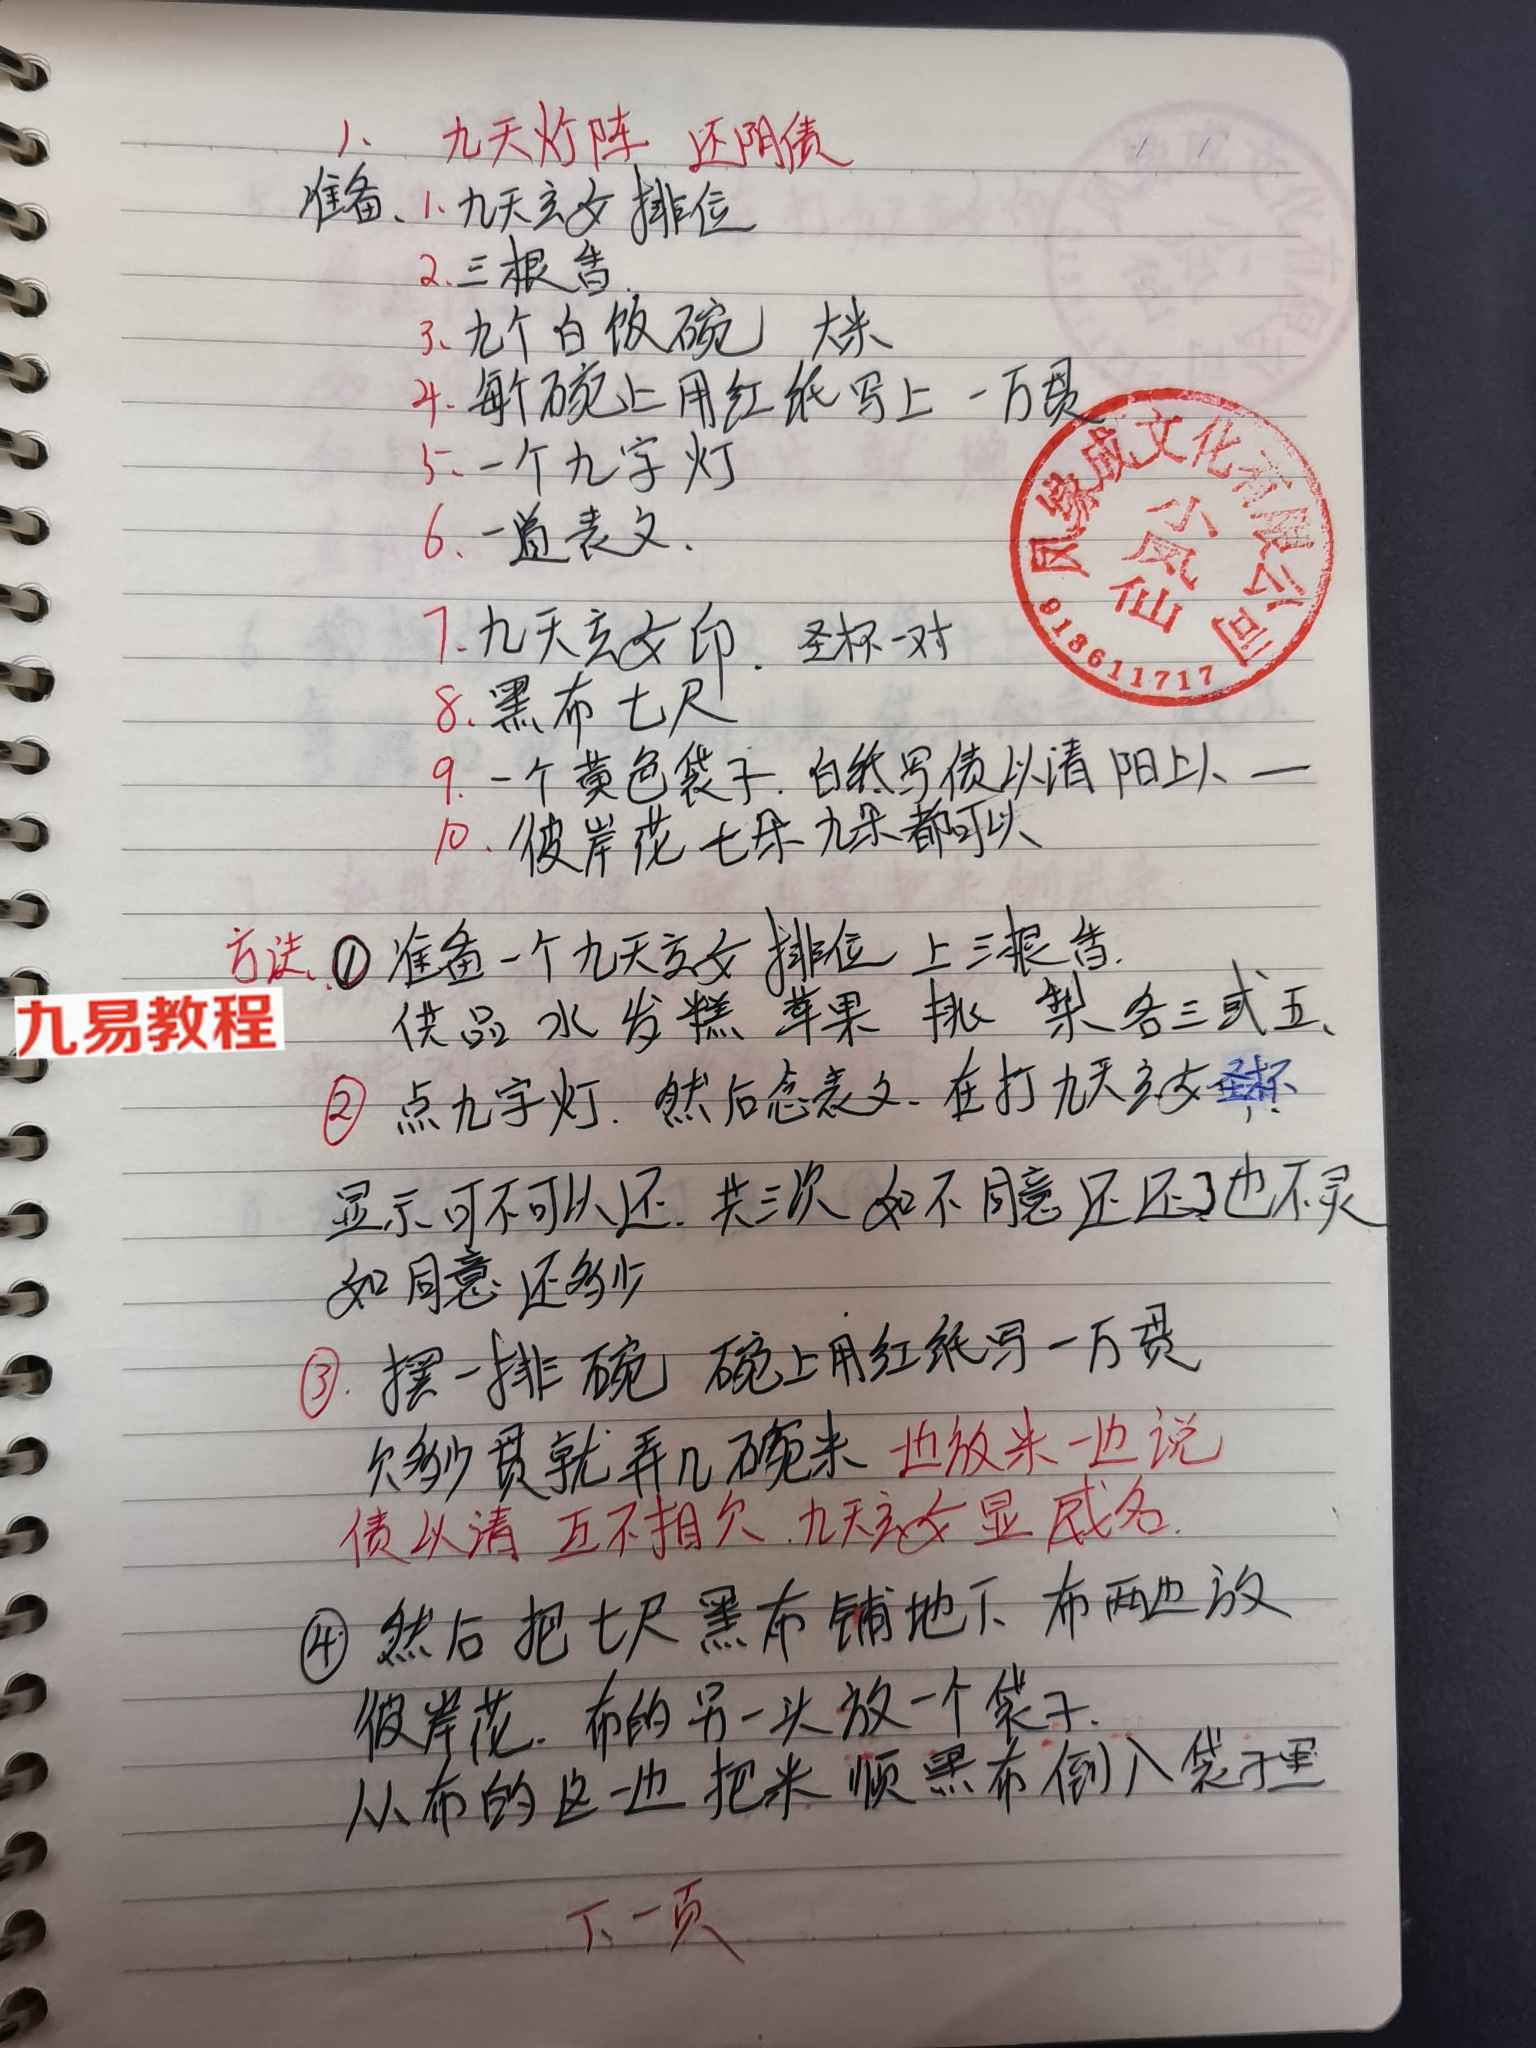 1、 九天灯阵 还阴债
准备、1.九天玄女 排位
2.三根香.
3.九个白饭碗 大米
4.每个碗上用红纸写上 一万贯
5.一个九字灯
6、一道表文.
7.九天玄女印. 圣杯一对
8.黑布七尺
9.一个黄色袋子.白纸写债以清 阳上人 —
10.彼岸花七朵九朵都可以
方法.①准备一个九天玄女排位 上三根香.
供品 水 发糕 苹果 桃 梨 各三或五、
②点九字灯.然后念表文.在打九天玄女圣杯.
显示可不可以还.共三次 如不同意还还了也不灵
如同意 还多少
③.摆一排碗 碗上用红纸写一万贯
欠多少贯就弄几碗米 边放米一边说
债以清 互不相欠.九天玄女显威名.
④然后把七尺黑布铺地下 布两边放
彼岸花.布的另一头放一个袋子.
从布的这一边把米顺黑布倒入袋子里
下一页
凤缘成文化有限公司
小凤仙
918611717
九易教程